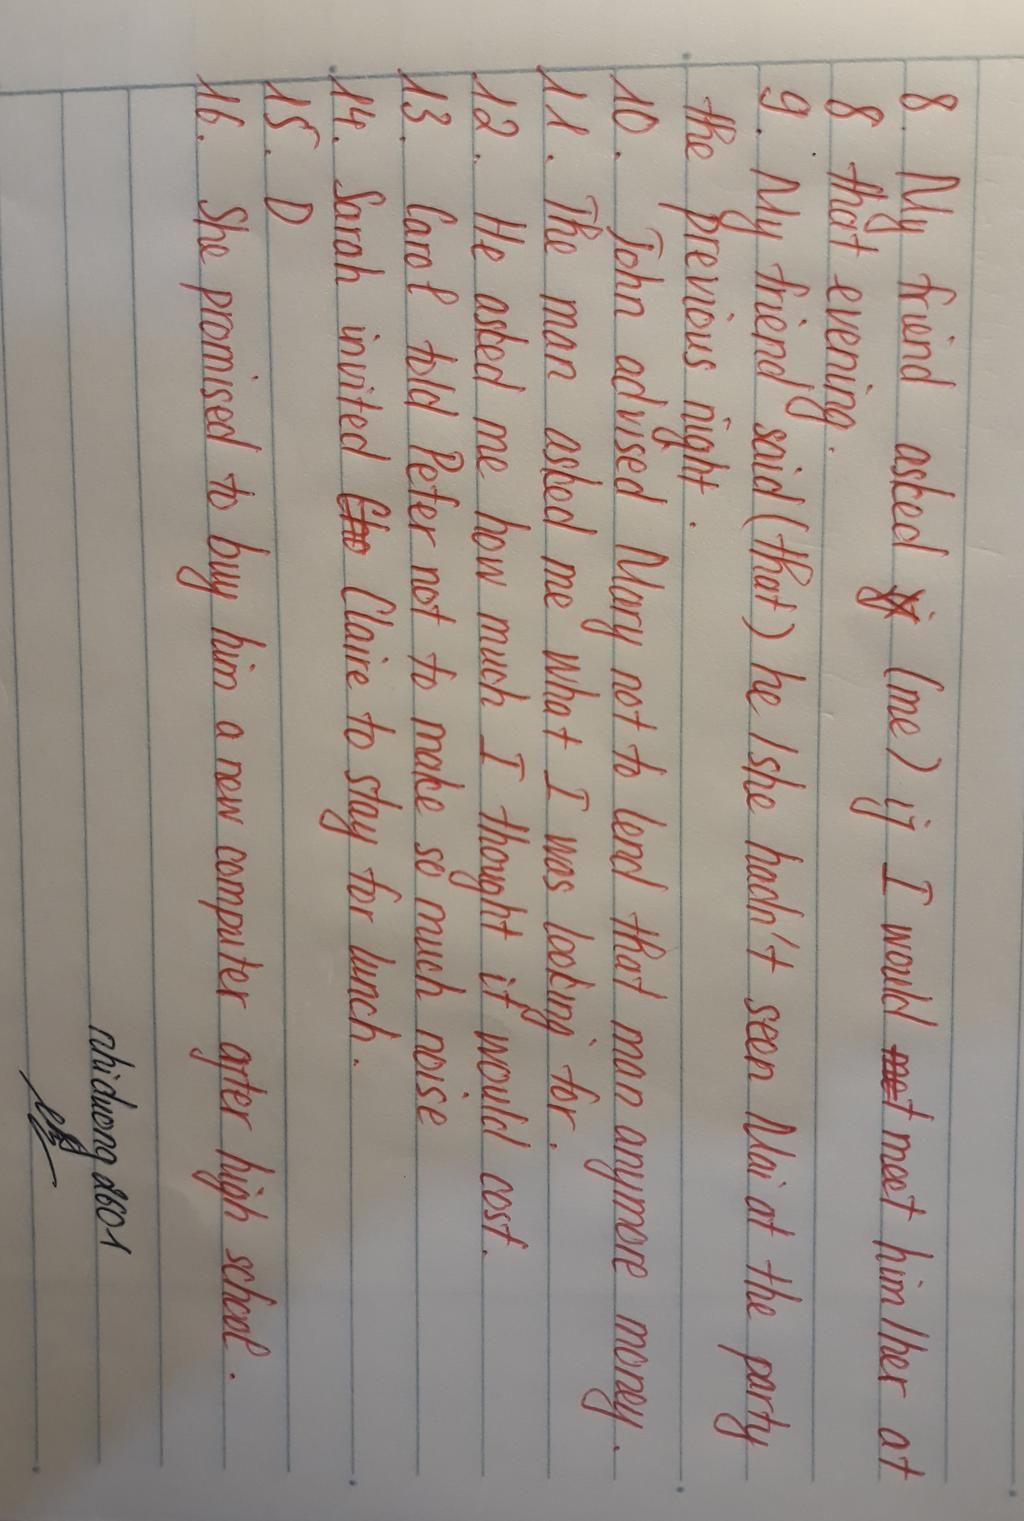 8. My friend asked (me) if I would meet him/her at
8 that evening.
9. My friend said (that) he/she hadn't seen Mai at the party
the previous night.
10. John advised Mary not to lend that man anymore money.
11. The man asked me what I was looking for.
12. He asked me how much I thought it would cost.
13. Carol told Peter not to make so much noise
14. Sarah invited Claire to stay for lunch.
15. D
16. She promised to buy him a new computer after high school.
nhiduong2601